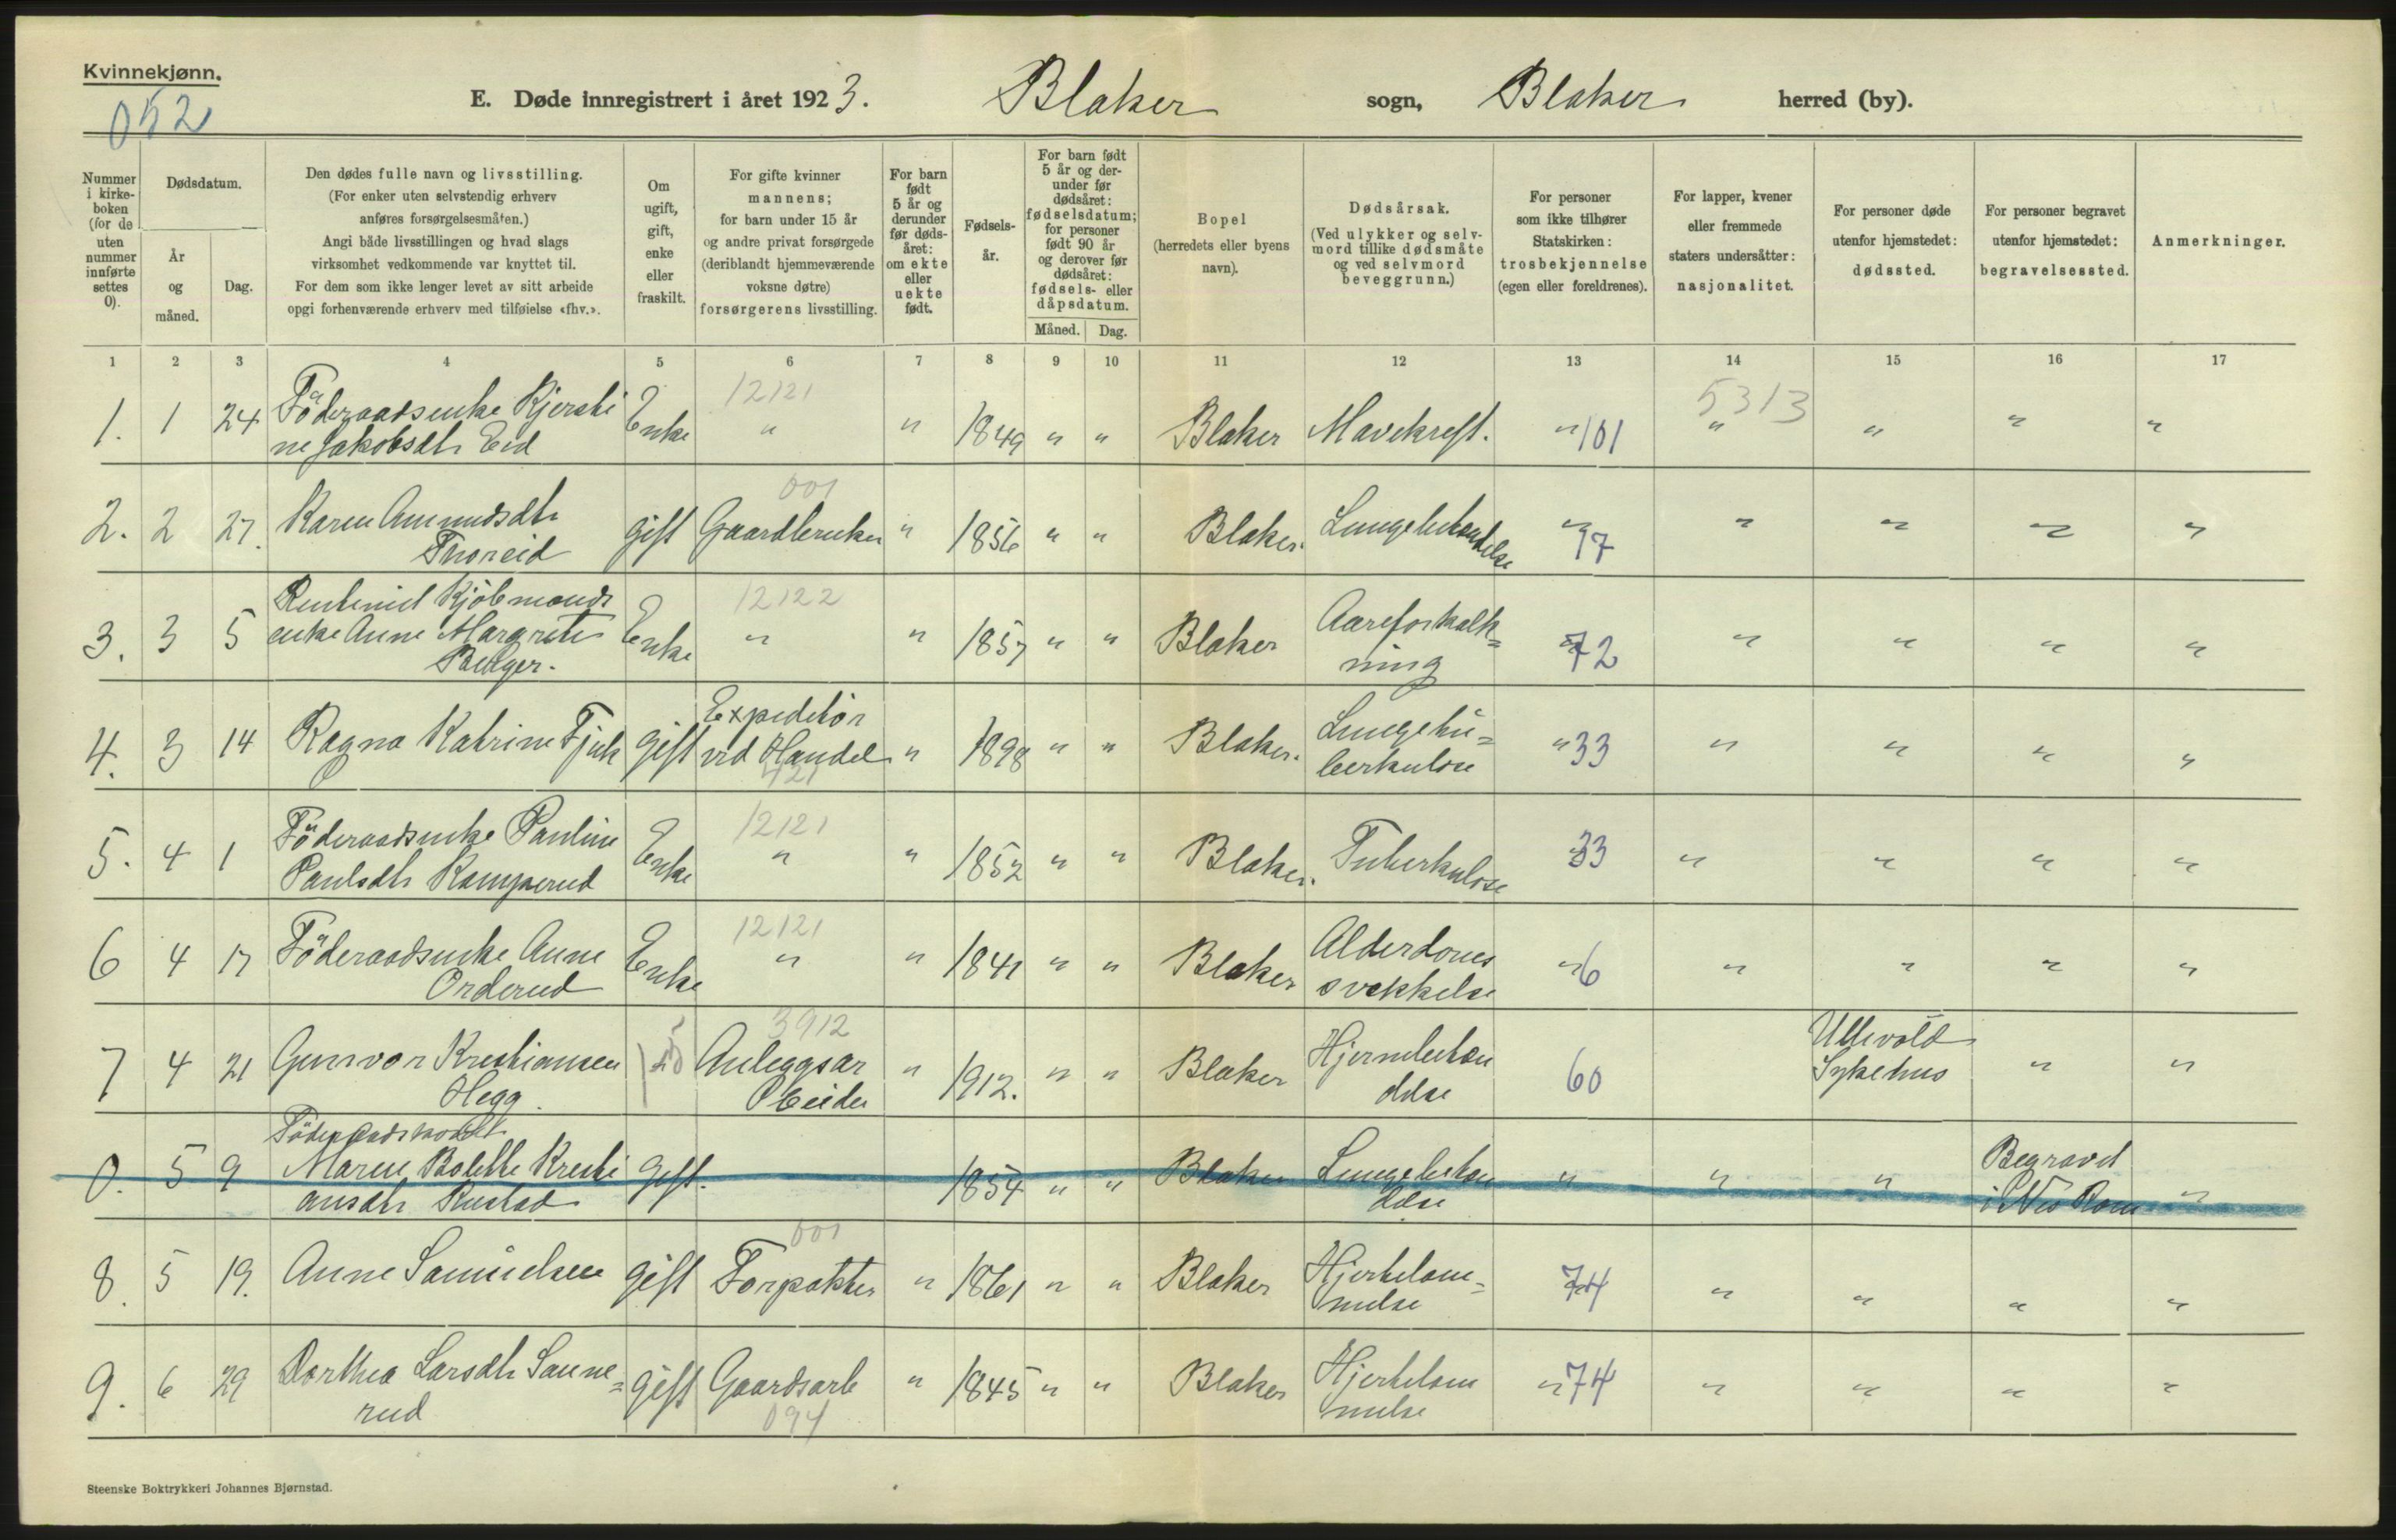 Kvinnekjønn.
052
E. Døde innregistrert i året 1923. Blaker sogn, Blaker herred (by).
Nummer i kirkeboken (for de uten nummer innførte settes 0).
Dødsdatum.
År og måned.
Dag.
Den dødes fulle navn og livsstilling.
(For enker uten selvstendig erhverv anføres forsørgelsesmåten.)
Angi både livsstillingen og hvad slags virksomhet vedkommende var knyttet til.
For dem som ikke lenger levet av sitt arbeide opgi forhenværende erhverv med tilføielse «fhv.».
Om ugift, gift, enke eller fraskilt.
For gifte kvinner mannens; for barn under 15 år og andre privat forsørgede (deriblandt hjemmeværende voksne døtre) forsørgerens livsstilling.
For barn født 5 år og derunder før dødsåret: om ekte eller uekte født.
Fødselsår.
For barn født 5 år og derunder før dødsåret: fødselsdatum; for personer født 90 år og derover før dødsåret: fødsels- eller dåpsdatum.
Måned. Dag.
Bopel (herredets eller byens navn).
Dødsårsak. (Ved ulykker og selvmord tillike dødsmåte og ved selvmord beveggrunn.)
For personer som ikke tilhører Statskirken: trosbekjennelse (egen eller foreldrenes).
For lapper, kvener eller fremmede staters undersåtter: nasjonalitet.
For personer døde utenfor hjemstedet: dødssted.
For personer begravet utenfor hjemstedet: begravelsessted.
Anmerkninger.
1 2 3 4 5 6 7 8 9 10 11 12 13 14 15 16 17
12121 5313
1. 1 24 Föderaadsenke Kjersti Enke " " 1849 " " Blaker Mavekreft. " 101 " " " "
ne Jakobsdtr Eid
001
2. 2 27. Karen Amundsdtr gift Gaardbruker " 1856 " " Blaker. Lungebetændelse " 97 " " " "
Thoreid
12122
3. 3 5 Kjöbmands Enke " " 1857 " " Blaker Aareforkalk= 72 " " " "
enke Anne Margrete ning
Berger.
Expeditör
4. 3 14 Ragna Katrine Fjuk gift ved Handel " 1898 " " Blaker. Lungetu= " 33 " " " "
421 berkulose
12121
5. 4 1 Föderaadsenke Pauline Enke " " 1852 " " Blaker. Tuberkulose 33 " " " "
Paulsdtr Kamperud
12121
6 4 17 Föderaadsenke Anne Enke " " 1841 " " Blaker Alderdoms " 6 " " " "
Orderud svekkelse
3912
7 4 21 Gunvor Kristiansen Anleggsar " 1912. " " Blaker Hjernebetæn 60 Ullevold " "
Hegg. beider ddse Sykehus
0. 5 9 Maren Bolette Kristi gift. 1854 " " Blaker Lungebetæn " " " Begravet "
ansdtr Rustad delse i Nes Rom
001
8. 5 19. Anne Samuelsen gift Forpakter " 1861 " " Blaker Hjertelam= 74 " " " "
melse
9. 6 29 Dorthea Larsdtr Sanne= gift Gaardsarb " 1845 " " Blaker Hjertelam " 74 " " " "
rud 094 melse
Steenske Boktrykkeri Johannes Bjørnstad.